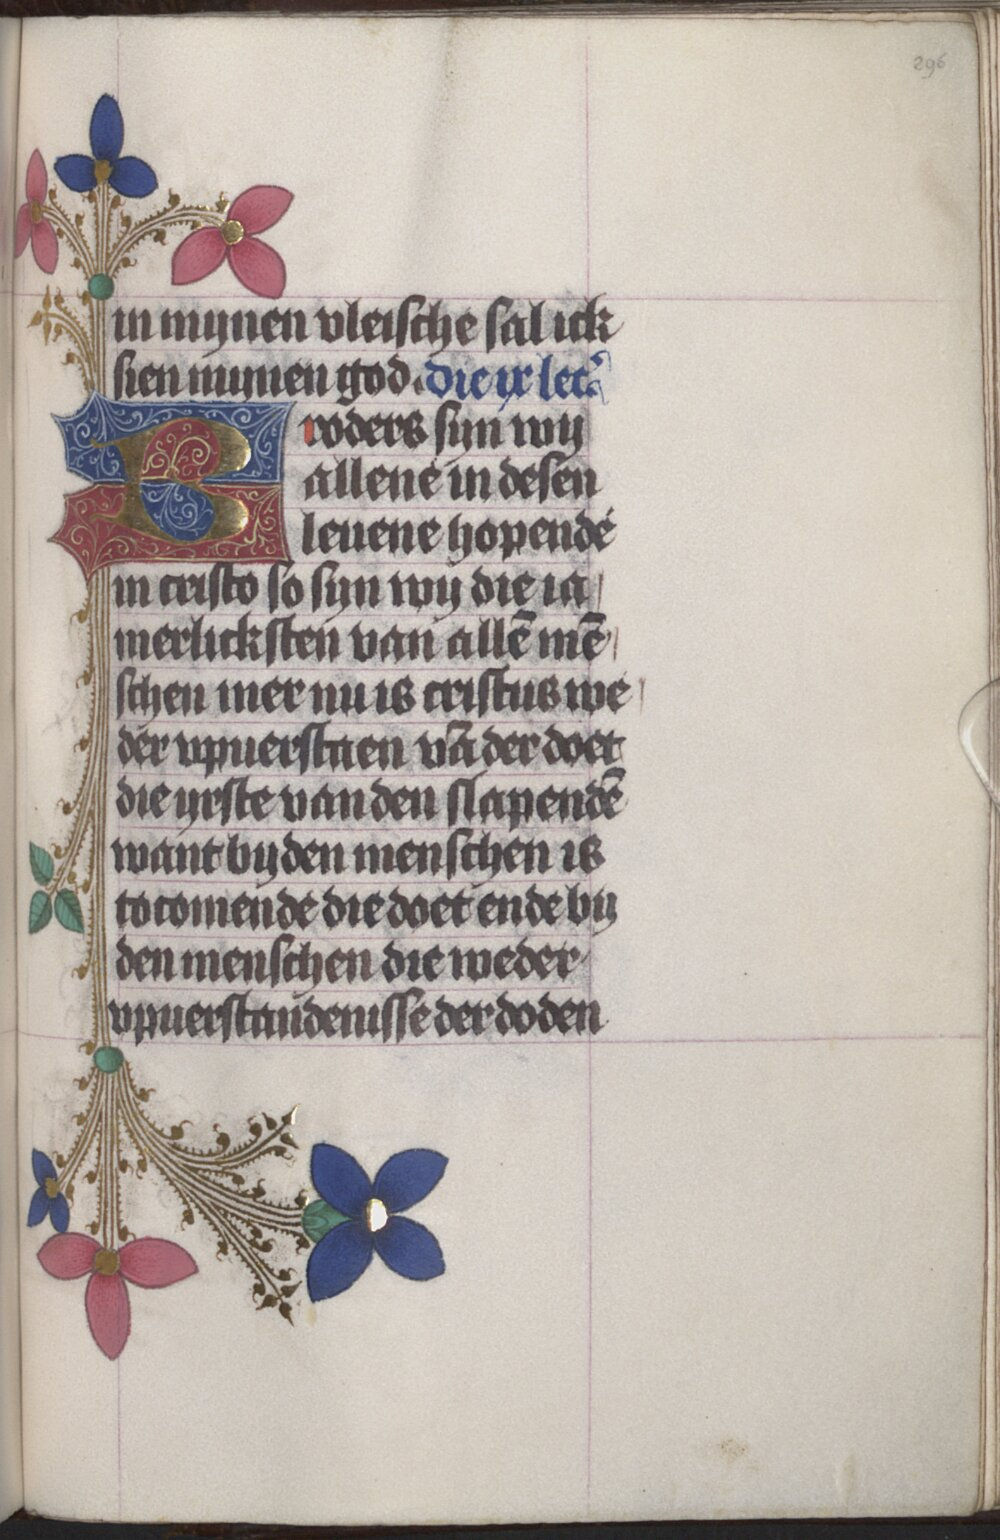 296
in mynen vleische sal ick
sien mynen god. die ix lec̄
Broders syn wy
allene in desen
leuene hopende
in cristo so syn wy die ia
merlicksten van allē mē
schen mer nu is cristus we
der vpuerstaen vā der doet
die yrste van den slapendē
want by den menschen is
tocomende die doet ende by
den menschen die weder
vpuerstandenisse der doden